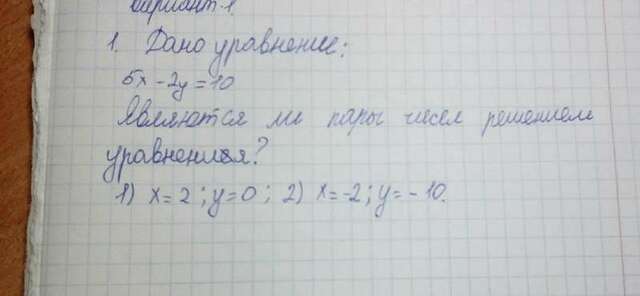 Вариант 1.
1. Дано уравнение:
5x - 2y = 10
Являются ли пары чисел решением
уравнения?
1) x = 2; y = 0; 2) x = -2; y = -10.